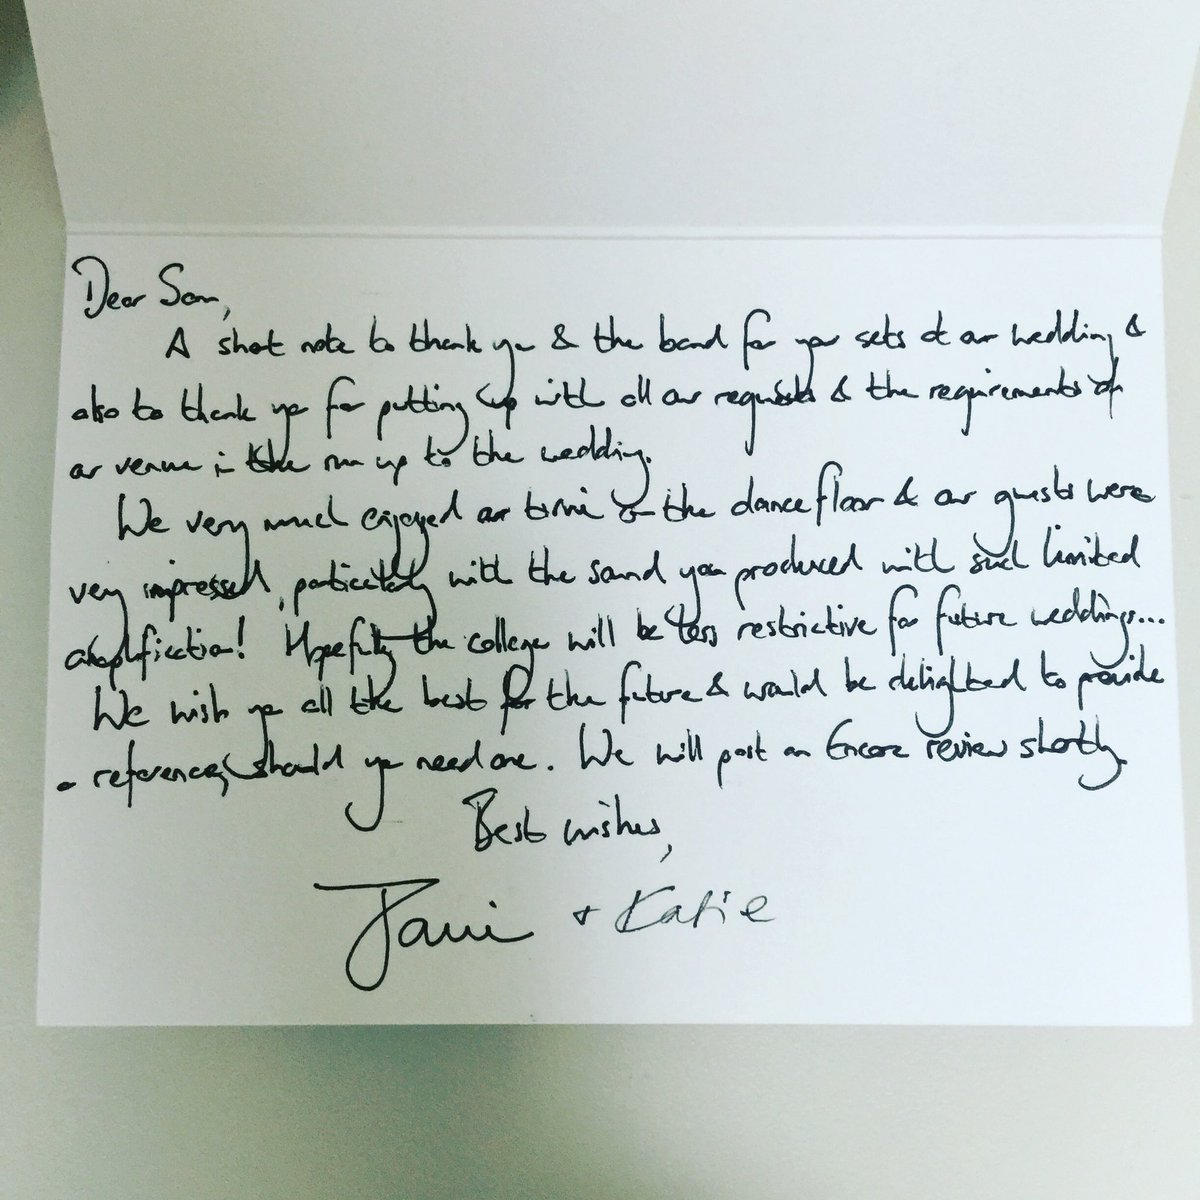 Dear Sam,
A short note to thank you & the band for your sets at our wedding &
also to thank you for putting up with all our requests & the requirements of
our venue in the run up to the wedding.
We very much enjoyed our time on the dancefloor & our guests were
very impressed, particularly with the sound you produced with such limited
amplification! Hopefully the college will be less restrictive for future weddings...
We wish you all the best for the future & would be delighted to provide
a reference, should you need one. We will post an Encore review shortly.
Best wishes,
Jami + Katie